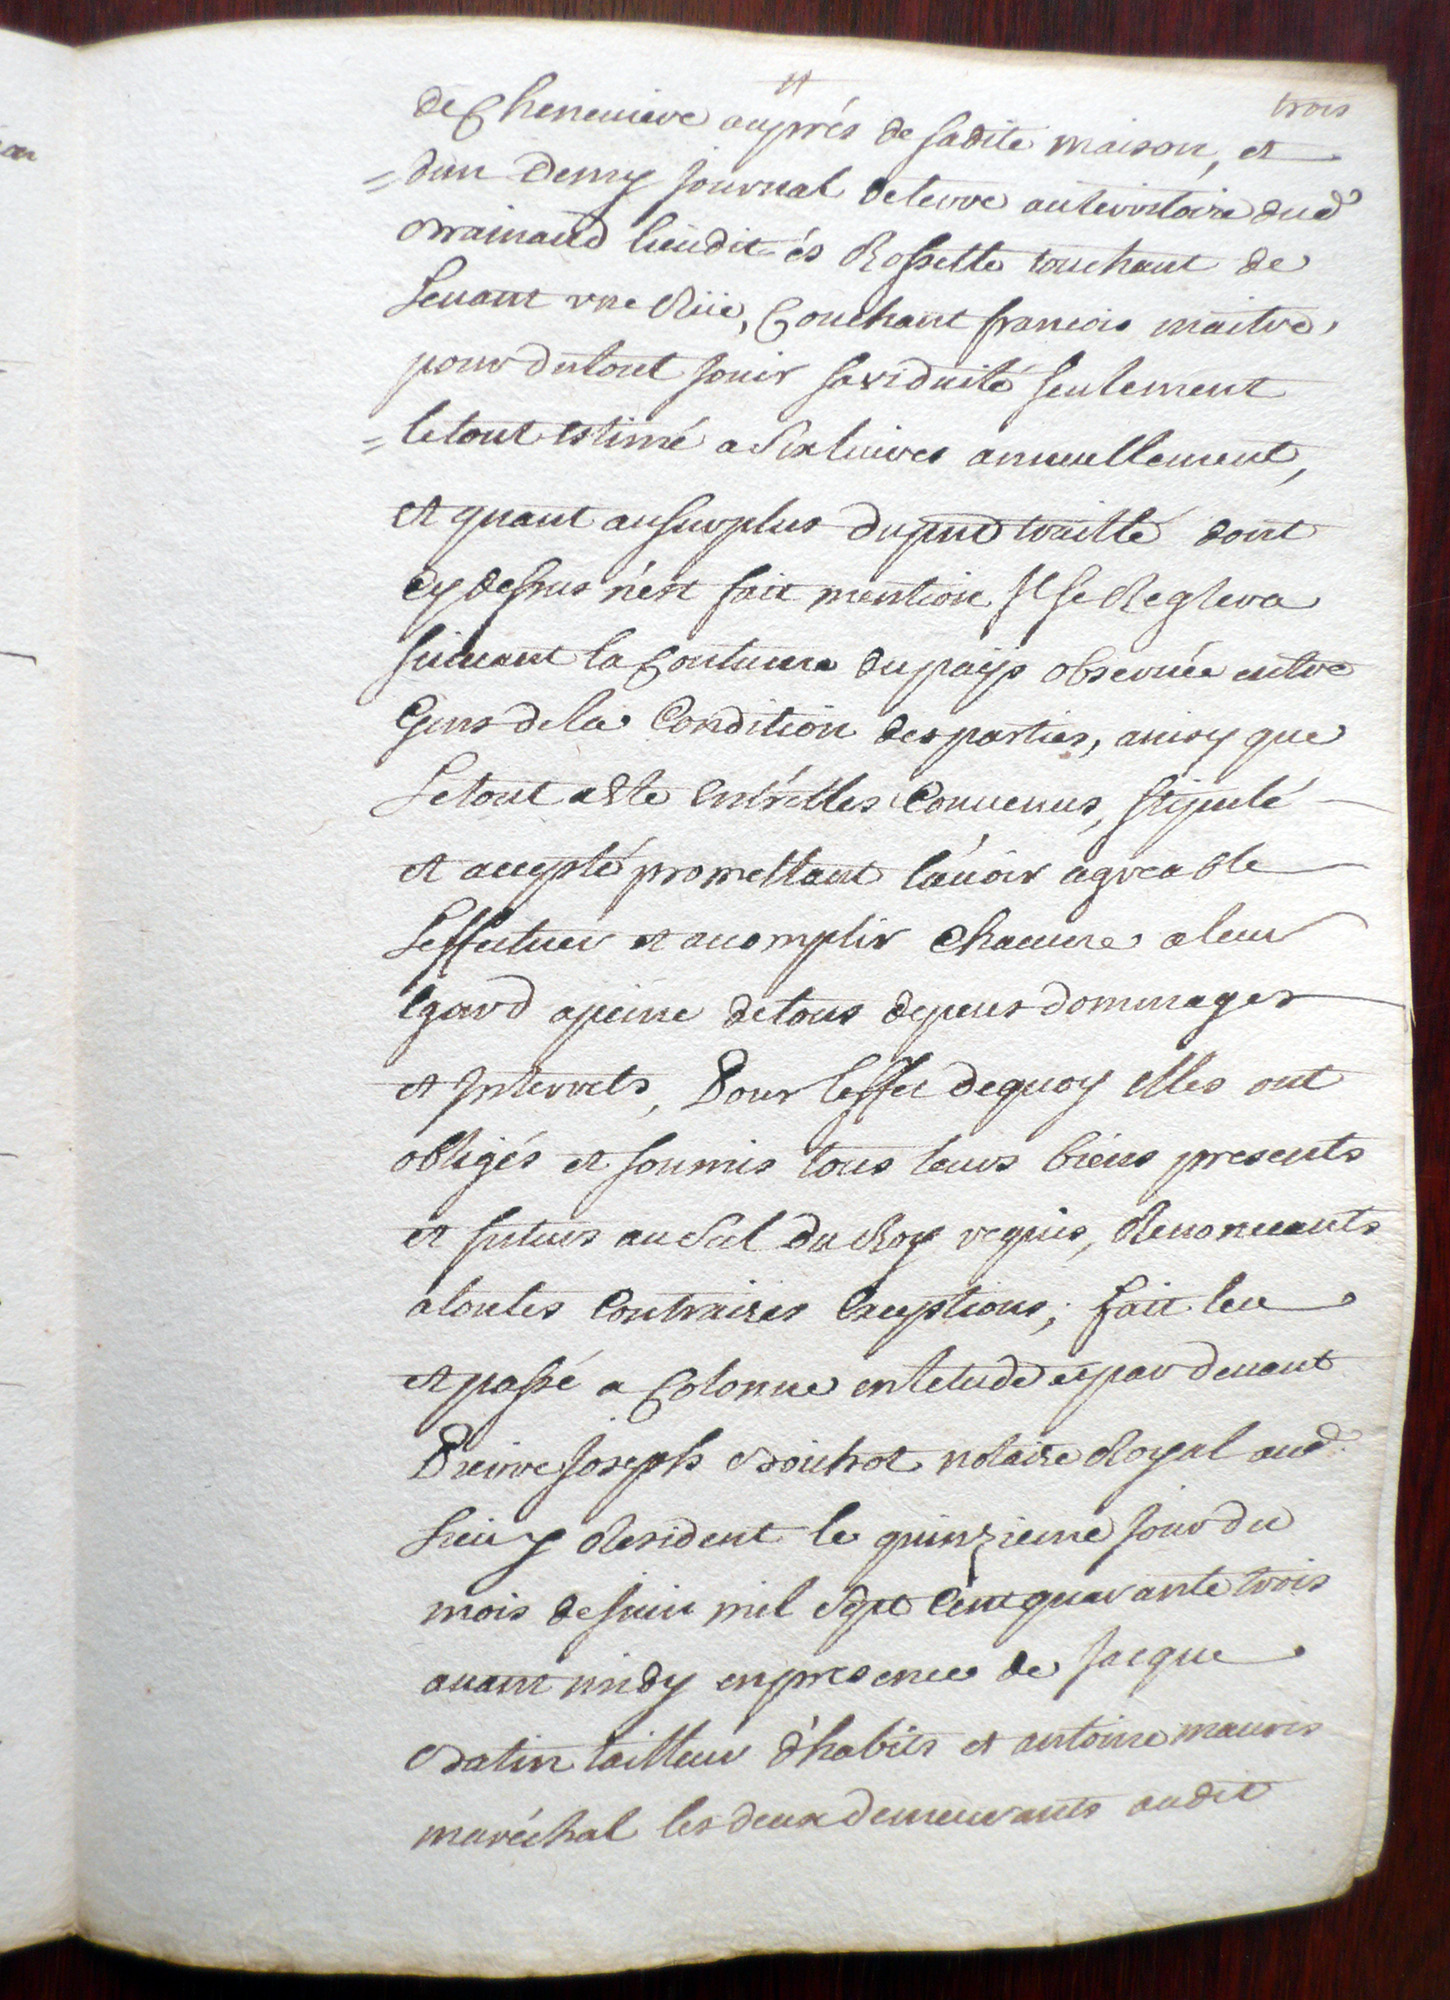 trois
de Cheneuiere auprés de sadite maison, et
= d'un Demy Journal de terre au territoire dud.
Orainaud lieudit és Rossette touchant de
Leuant vne Rüe, Couchant francois maitre,
pour du tout Jouir sa viduité seulement
= le tout estimé a Six liures annuellement,
et quant au surplus du pnt traitté dont
Cy dessus n'est fait mention Il se Reglera
suiuant la Coutume du païs obseruée entre
Gens de la Condition des parties, ainsy que
Le tout a Ete Entr'elles Conuenus, stipulé
et accepté promettant l'auoir agreable
L'effectuer et accomplir chacune a leur
Egard a peine de tous depens dommages
et Interrets, Pour l'effet de quoy elles ont
obligés et soumis tous leurs biens presents
et futurs au Scel du Roy requis, Renonceants
a toutes Contraires Exceptions; fait leu
et passé a Colonne en l'etude et par deuant
Pierre Joseph Boichot notaire Royal aud.
Lieu y Resident le quinzieme Jour du
mois de Juin mil Sept Cent quarante trois
auant midy en presence de Jacque
Batin tailleur d'habits et antoine mauris
maréchal les deux demeurants audit